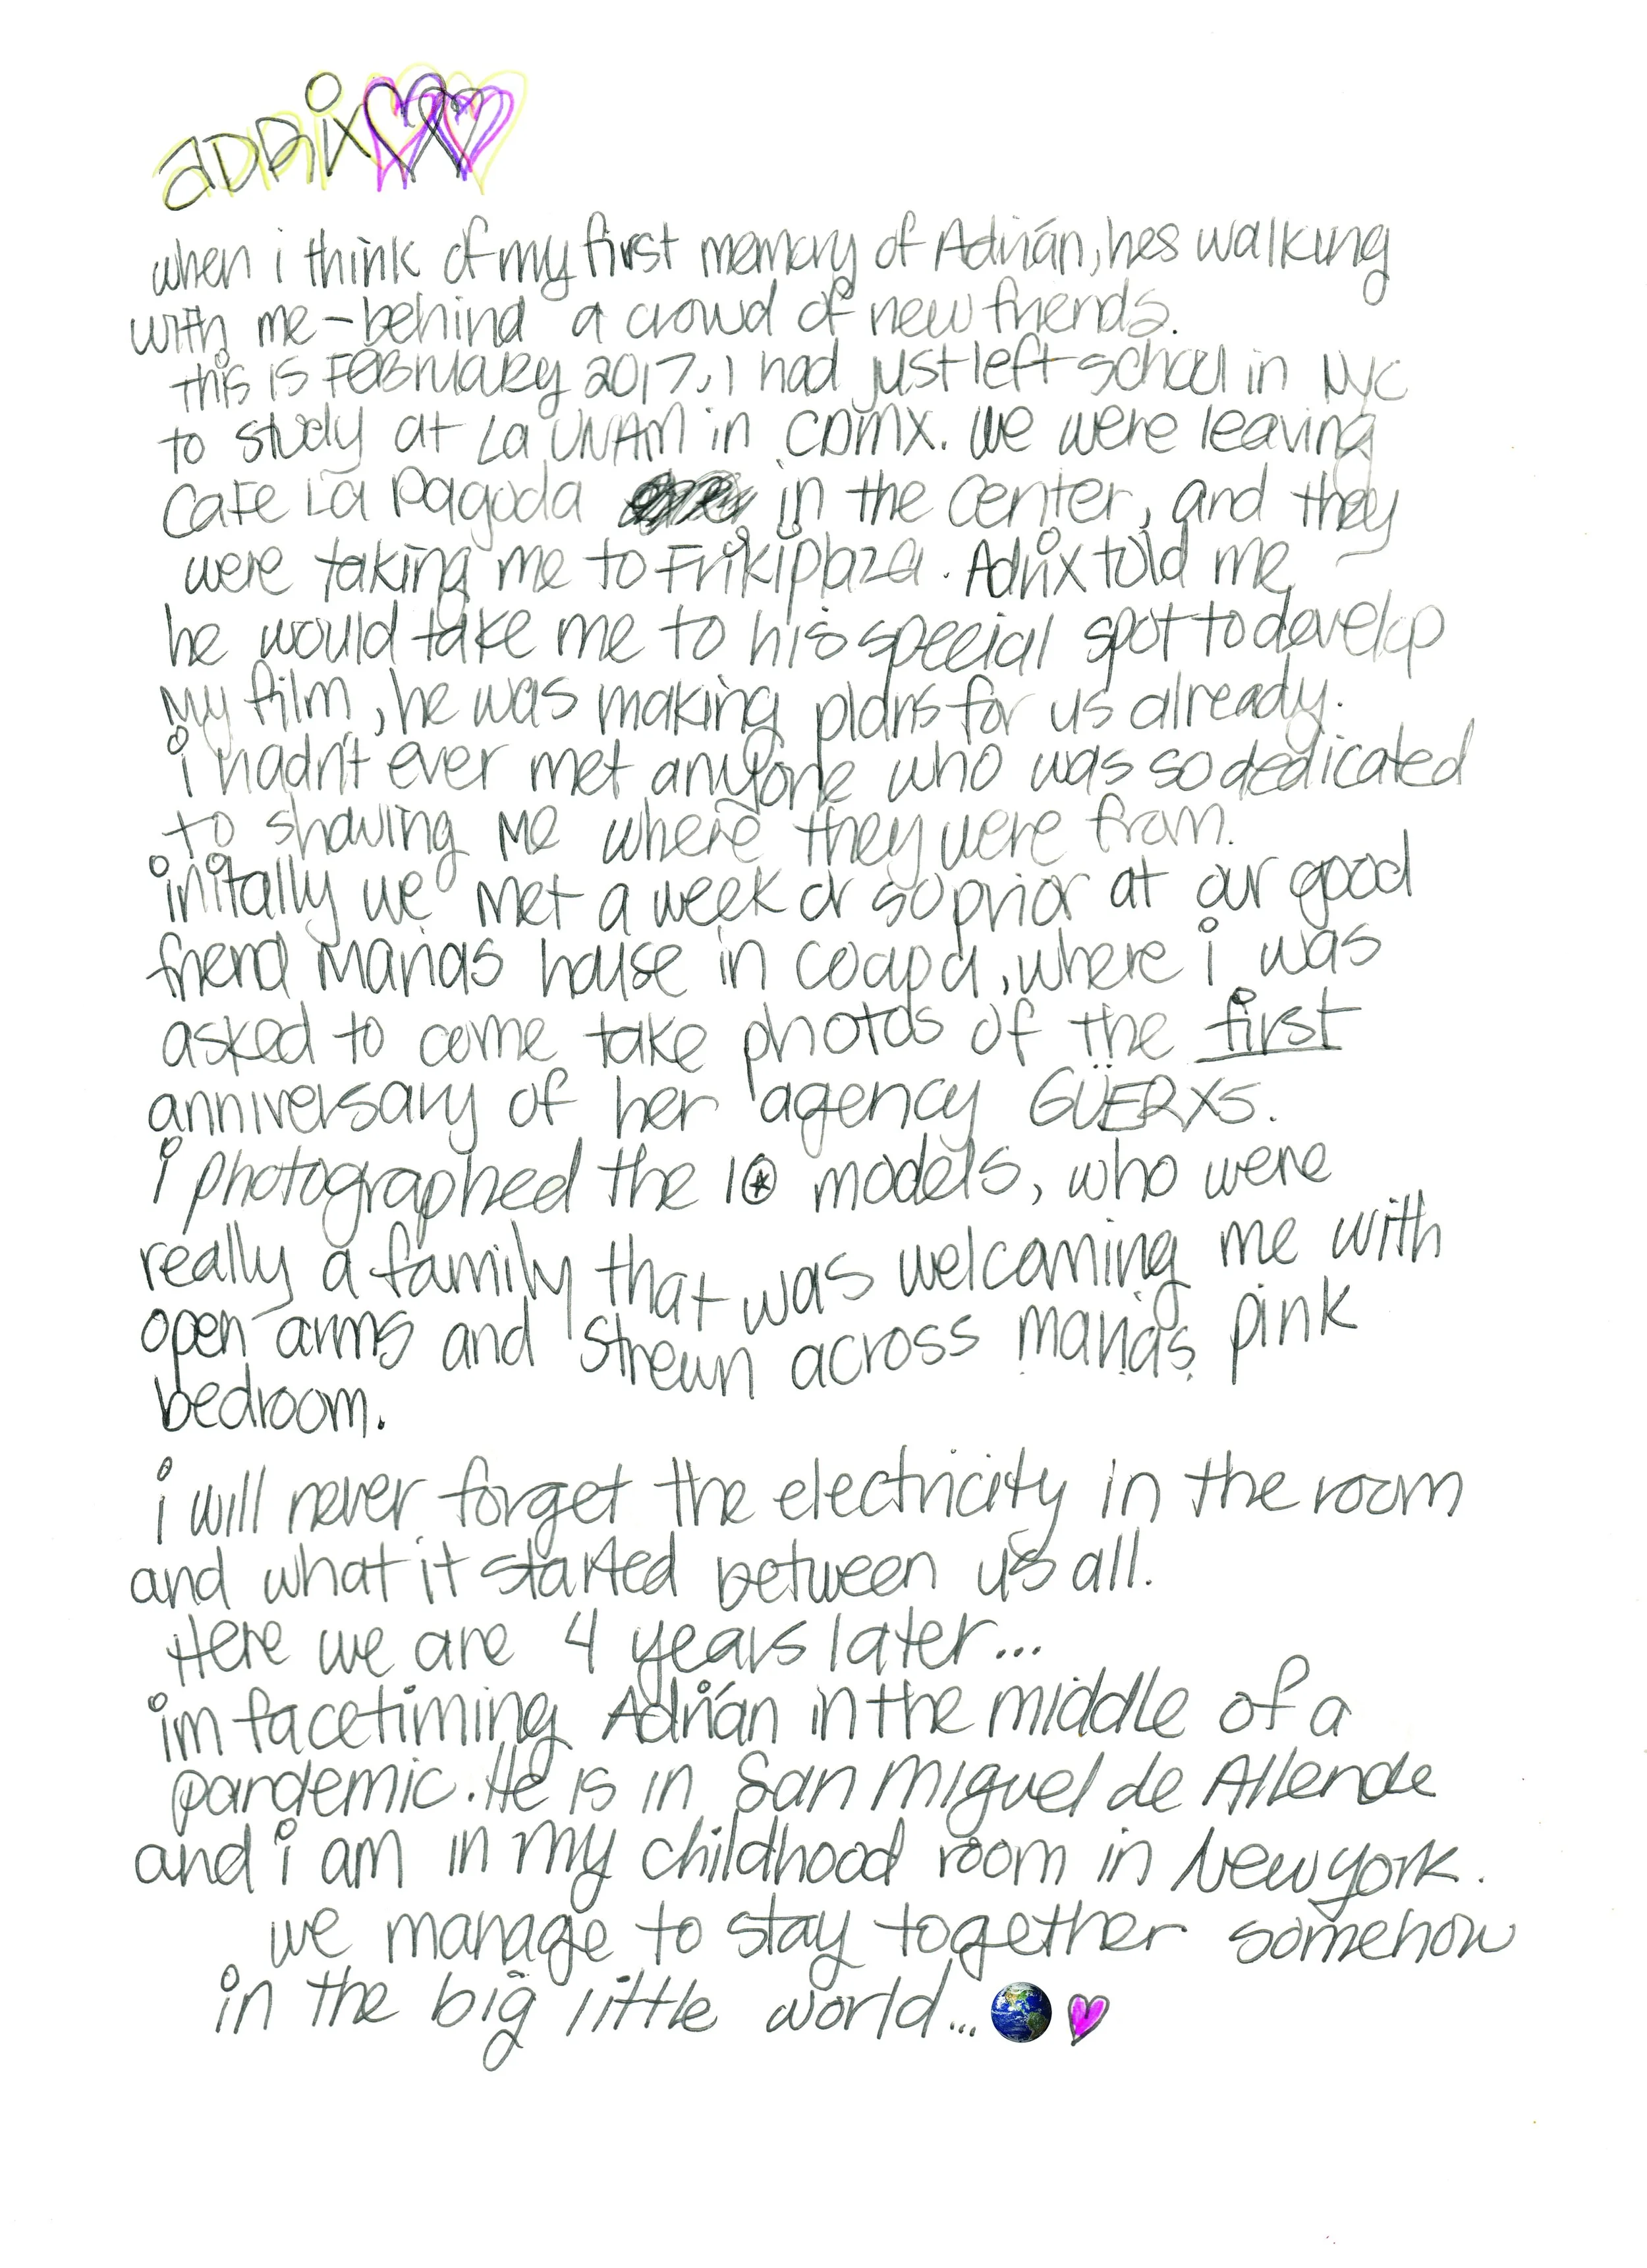 aDRix
when i think of my first memory of Adrián, hes walking
with me - behind a crowd of new friends.
this is FEBRUARY 2017, I had just left school in NYC
to study at La UNAM in CDMX. We were leaving
Cafe La Pagoda in the center, and they
were taking me to Frikiplaza. Adrix told me
he would take me to his special spot to develop
My film, he was making plans for us already.
i hadn't ever met anyone who was so dedicated
to showing me where they were from.
initally we met a week or so prior at our good
friend Marias house in coapa, where i was
asked to come take photos of the first
anniversary of her agency GÜERXS.
i photographed the 10 models, who were
really a family that was welcoming me with
open arms and strewn across Marias pink
bedroom.
i will never forget the electricity in the room
and what it started between us all.
Here we are 4 years later...
im facetiming Adrián in the middle of a
pandemic. He is in San Miguel de Allende
and i am in my childhood room in New york.
we manage to stay together somehow
in the big little world...